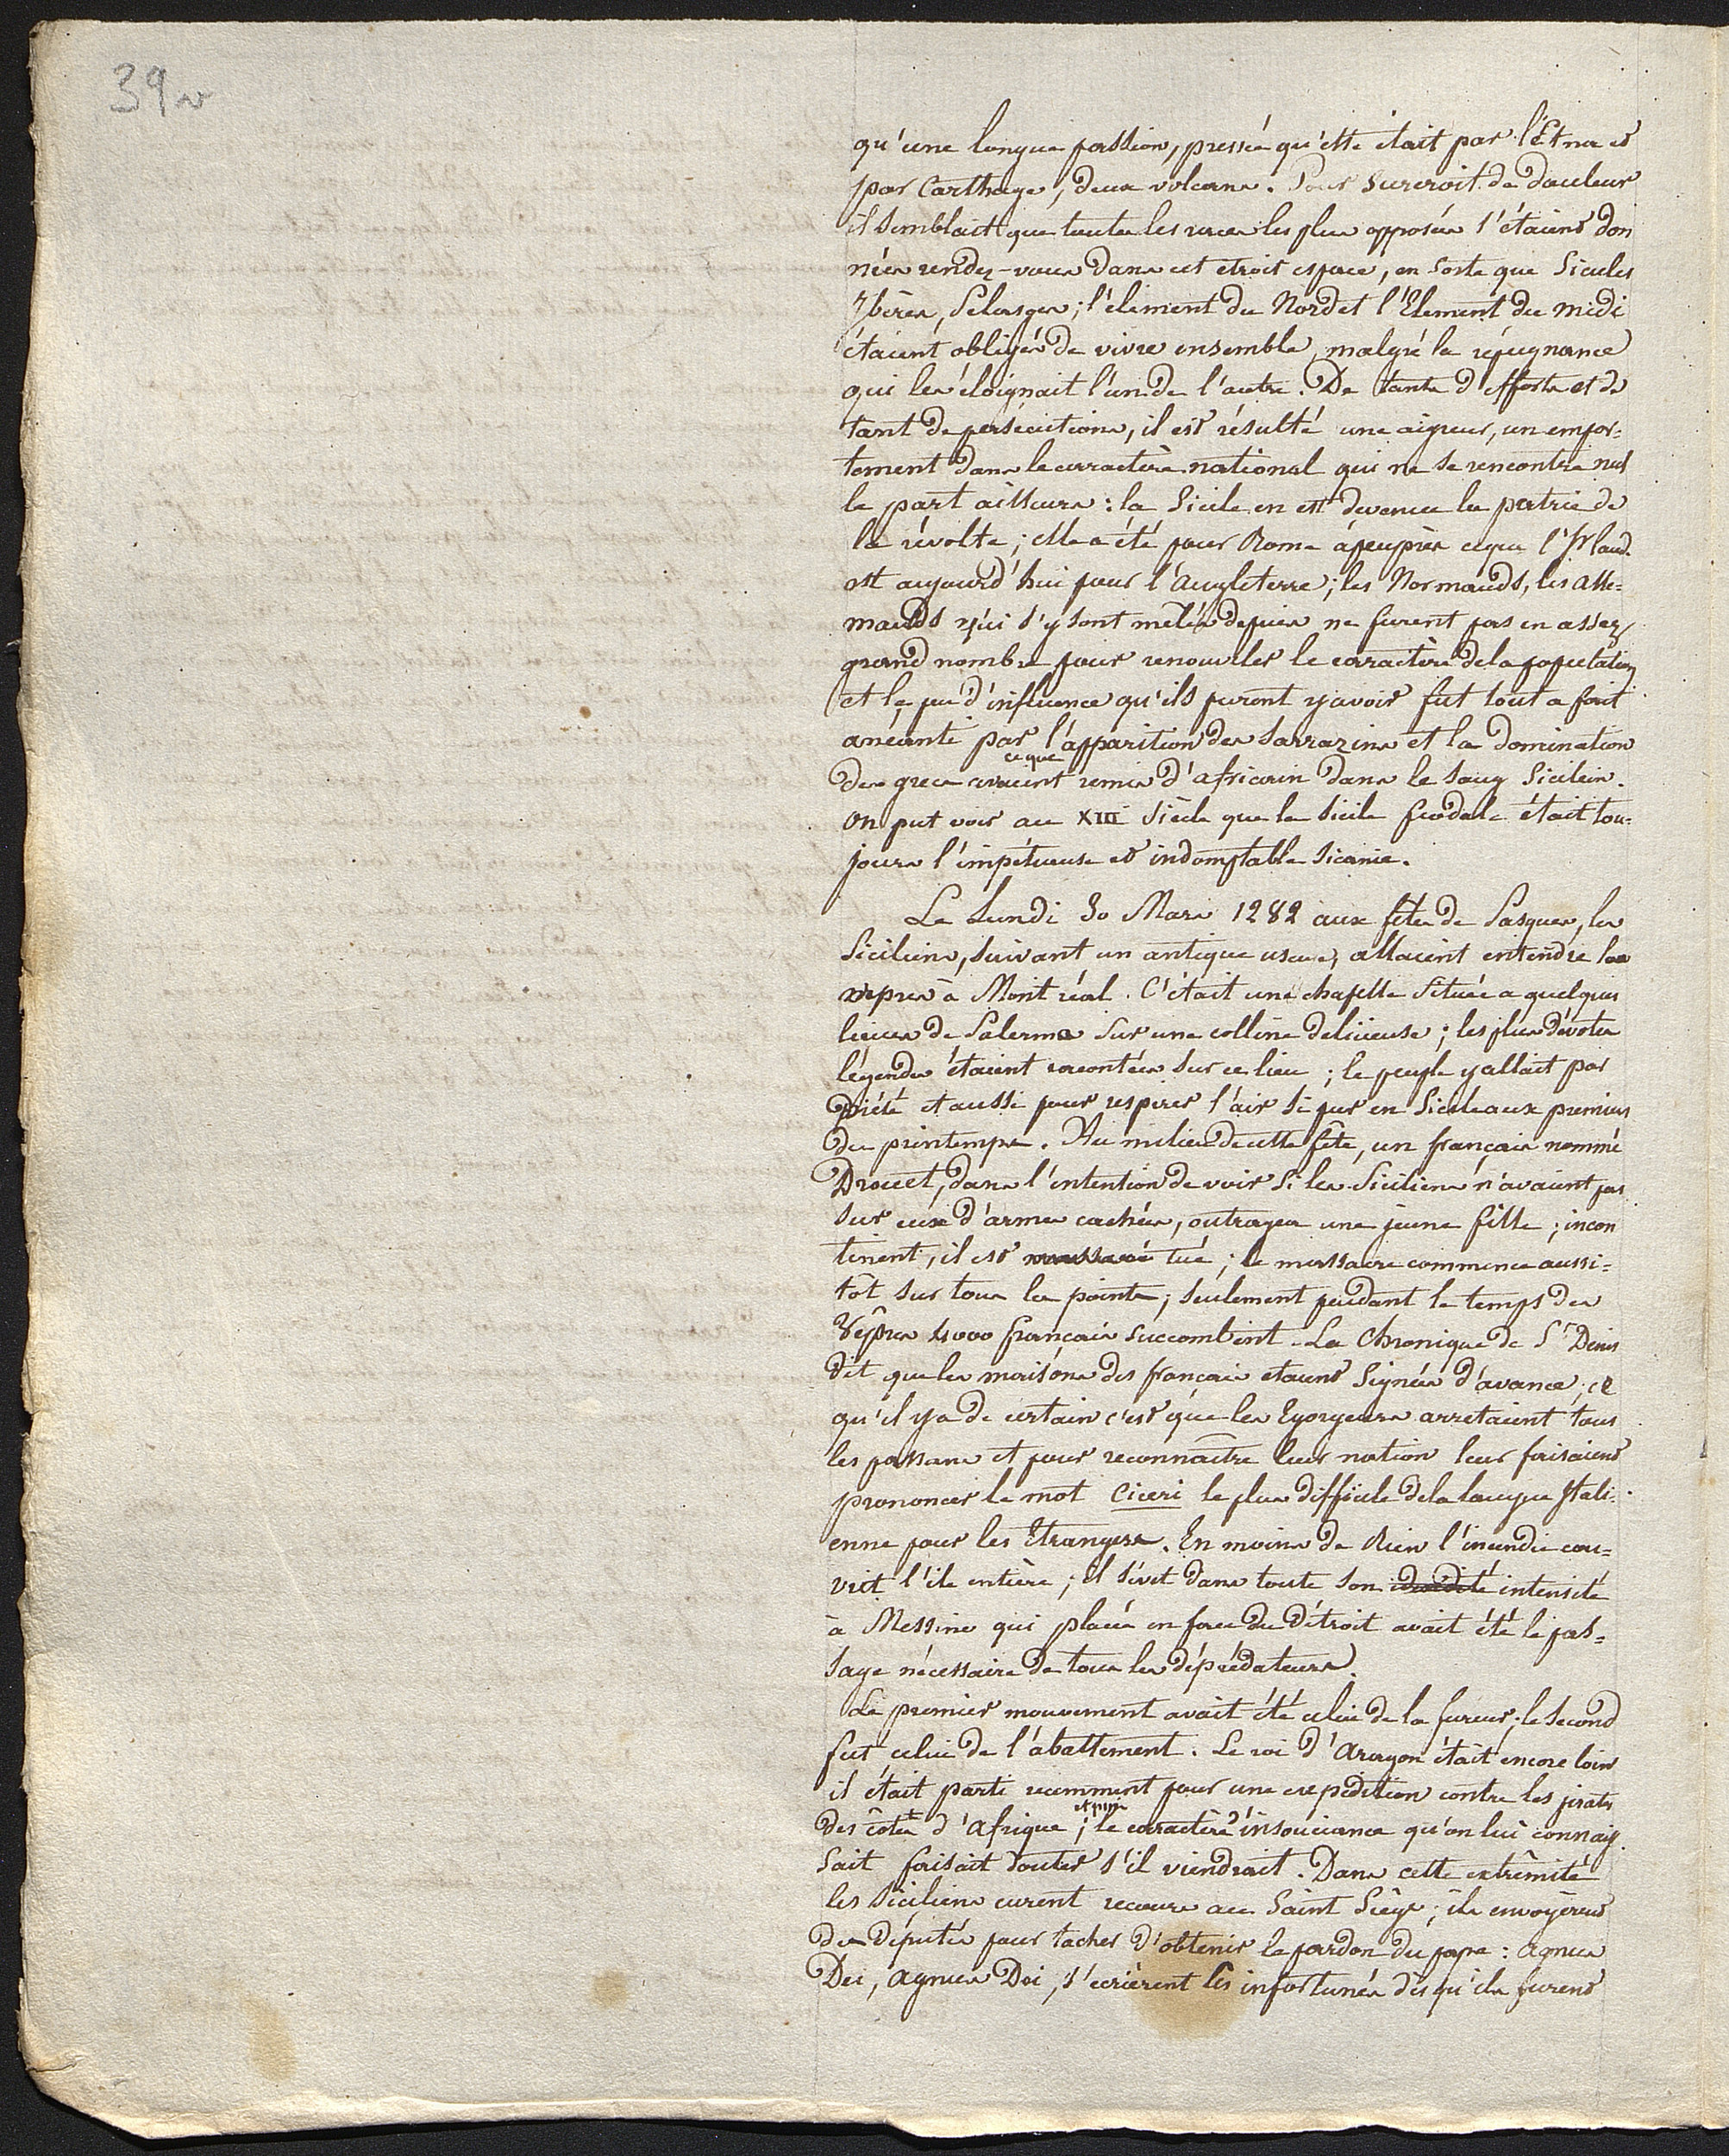 39 v
qu'une longue passion, pressée qu'elle était par l'Etna et
par Carthage, deux volcans. Pour surcroit de douleur
il semblait que toutes les races les plus opposées s'étaient don
nées rendez-vous dans cet etroit espace, en sorte que Sicules
Ybères, Pelasges; l'élement du Nord et l'Element du midi
étaient obligés de vivre ensemble, malgré la répugnance
qui les éloignait l'un de l'autre. De tants d'efforts et de
tant de persécutions, il est résulté une aigreur, un empor=
tement dans le caractère national qui ne se rencontre nul
le part ailleurs : la Sicile en est devenue la patrie de
la révolte ; elle a été pour Rome àpeuprès ceque l'Irland.
est aujourd'hui pour l'Angleterre ; les Normands, les alle=
mands qui s'y sont mélés depuis ne furent pas en assez
grand nombre pour renouveler le carractère dela population
et le peu d'influence qu'ils purent y avoir fut tout a fait
aneanti par l'apparition des Sarrazins et la domination
ceque
des grecs avaient remis d'africain dans le sang Sicilein.
On put voir au XIII Siècle que la Sicile féodale était tou=
jours l'impétueuse et indomptable Sicanie.
Le Lundi 30 Mars 1282 aux fêtes de Pasques, les
Siciliens, suivant un antique usage, allaient entendre les
vepres à Mont réal. C'était une chapelle située a quelques
lieues de Palerme sur une colline delicieuse ; les plus dévotes
légendes étaient racontées sur ce lieu ; le peuple y allait par
piété et aussi pour respirer l'air si pur en Sicile aux premiers
du printemps. Au milieu de cette fête, un français nommé
Drouet, dans l'intention de voir si les Siciliens n'avaient pas
sur eux d'armes cachées, outragea une jeune fille ; incon
tinent, il est massacré tué ; le massacre commence aussi=
tôt sur tous les points ; seulement pendant le temps des
Vêpres 4000 français succombent. La Chronique de St Denis
dit que les maisons des français etaient signées d'avance ; ce
qu'il y a de certain c'est que les Egorgeurs arretaient tous
les passans et pour reconnaître leur nation leur faisaient
prononcer le mot Ciceri le plus difficile dela langue Itali=
enne pour les Etrangers. En moins de Rien l'incendie cou=
vrit l'ile entière ; il sévit dans toute son intensité
à Messine qui placée en face du Détroit avait été le pas=
sage nécessaire de tous les déprédateurs.
Le premier mouvement avait été celui de la fureur ; le second
fut celui de l'abattement. Le roi d'Aragon était encore loin
il était parti recemment pour une expedition contre les pirates
et puis
des côtes d'Afrique ; le caractère d'insouciance qu'on lui connais
sait faisait douter s'il viendrait. Dans cette extrêmité
les Siciliens eurent recours au Saint Siège ; ils envoyèrent
des députés pour tacher d'obtenir le pardon du pape : agnus
Dei, agnus Dei, s'ecrièrent les infortunés dès qu'ils furent